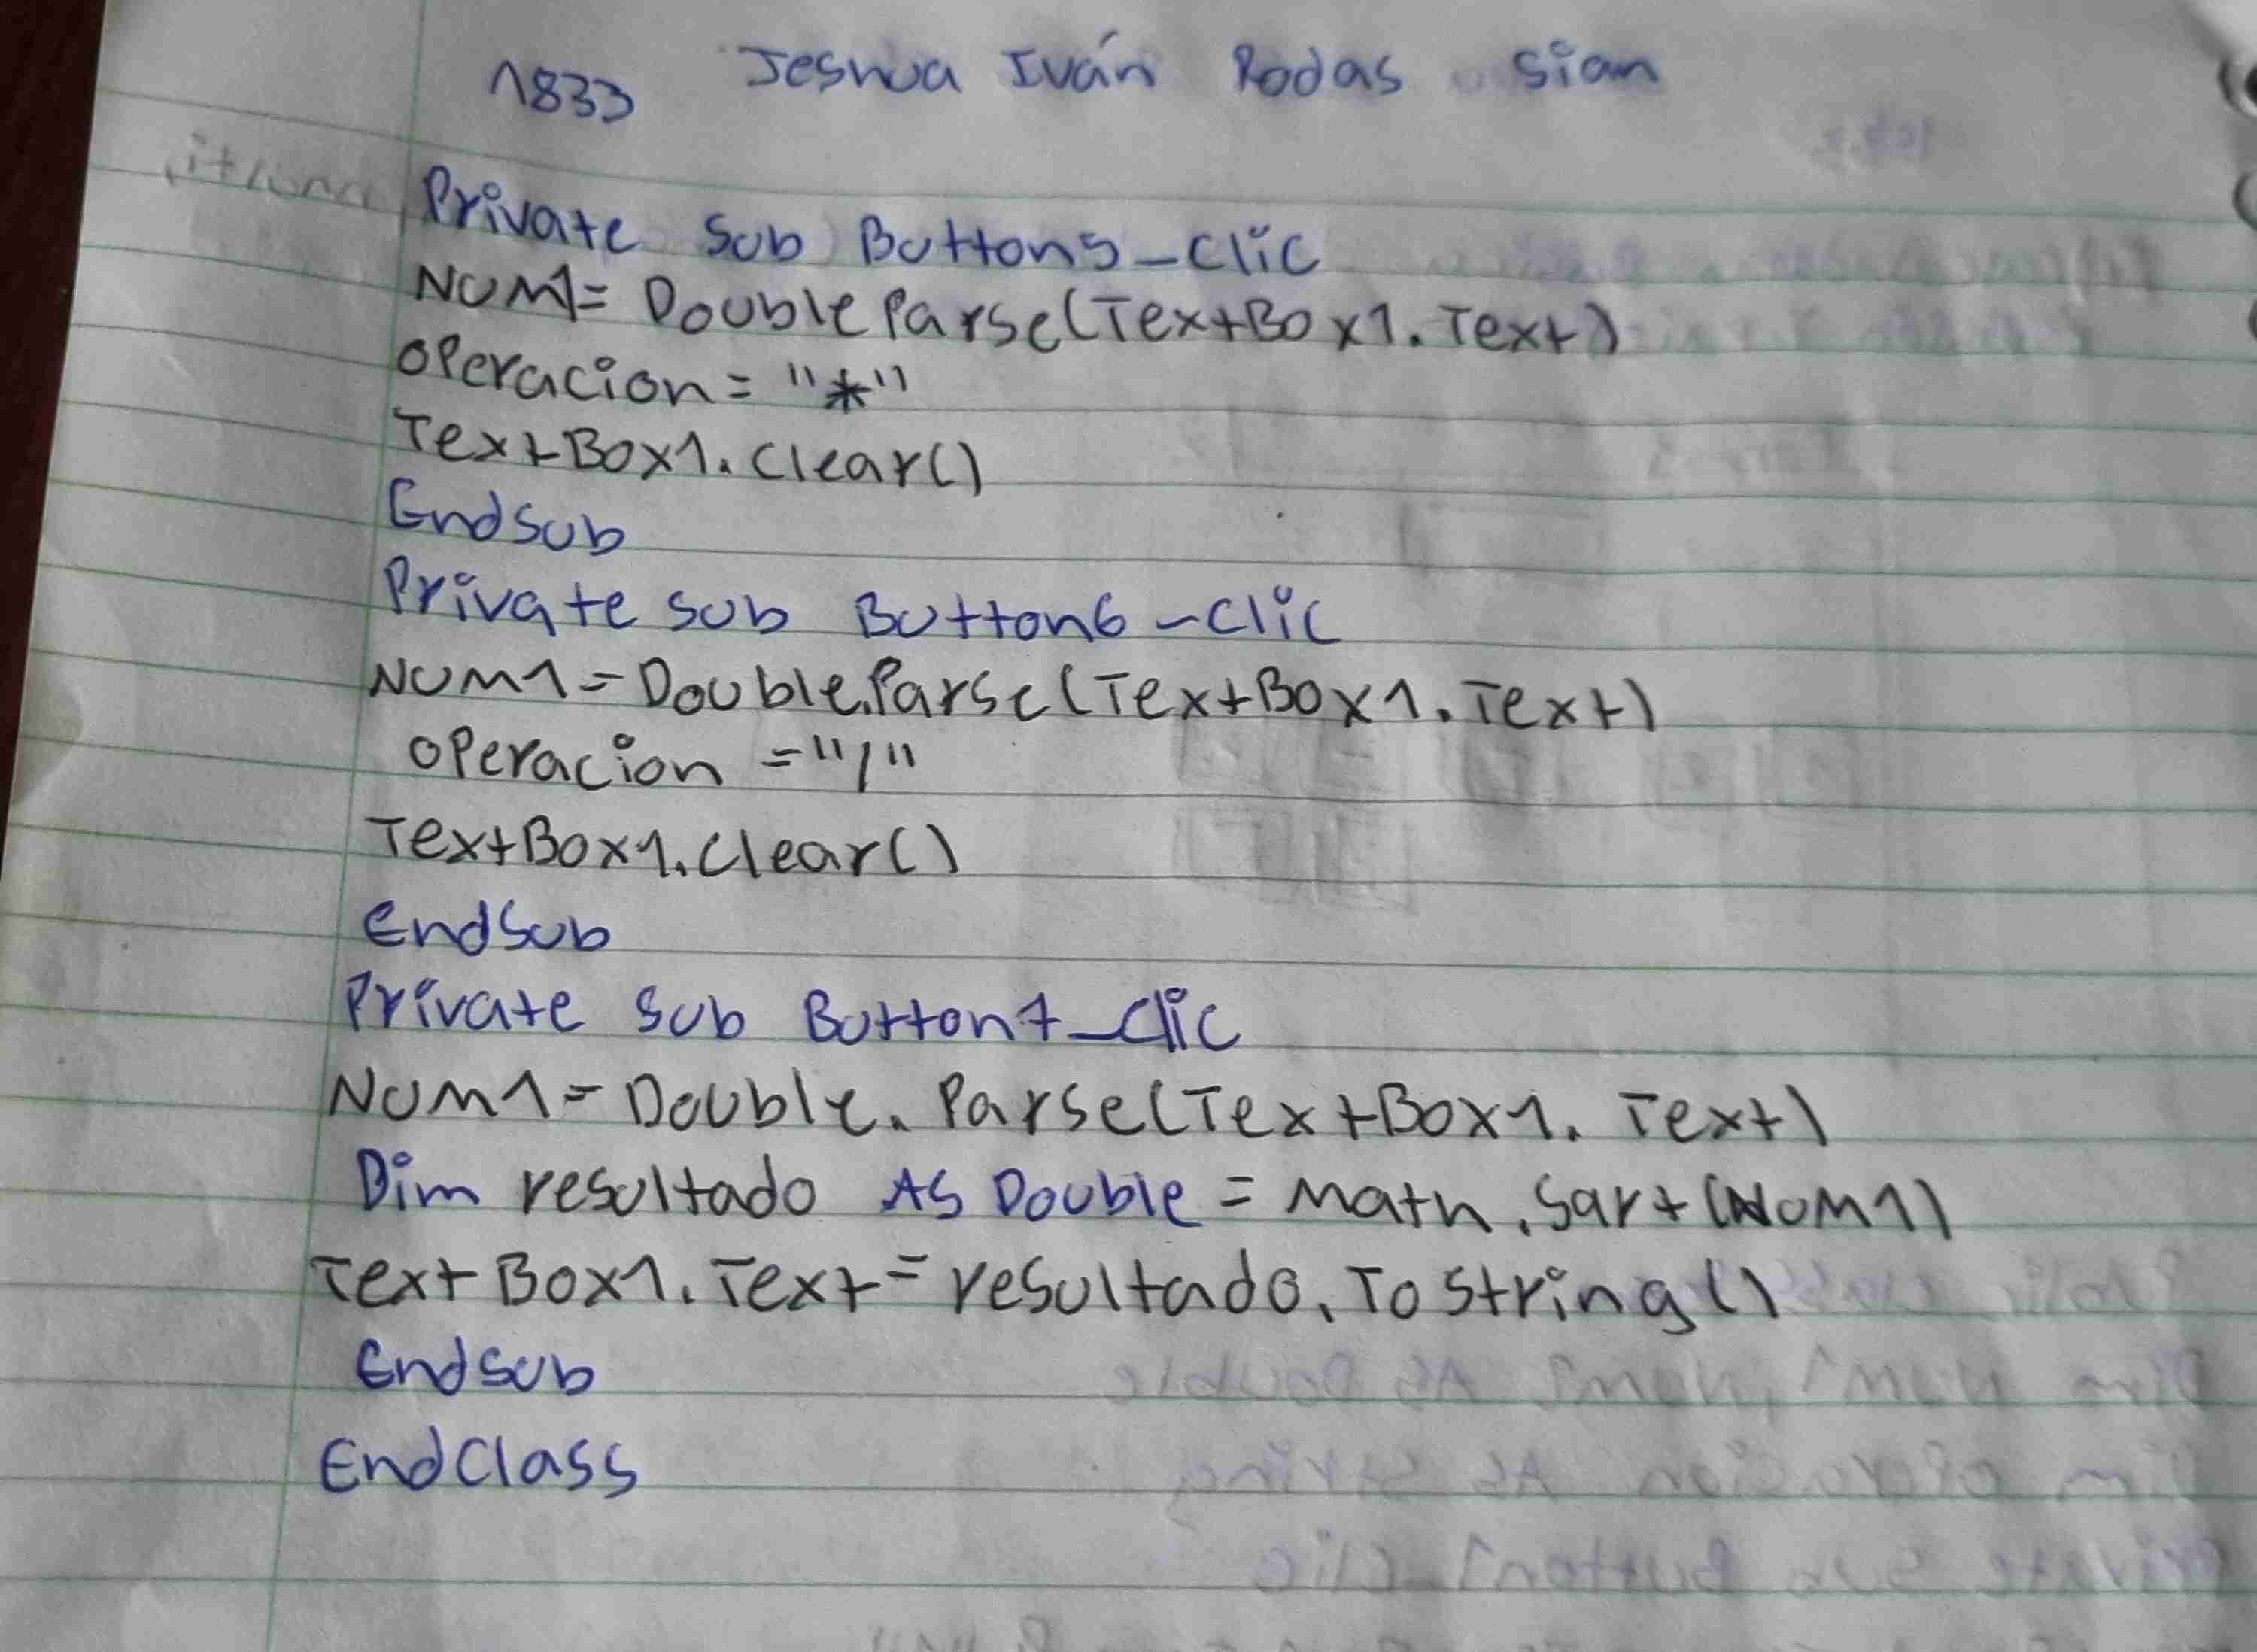 1833 Jeshua Iván Rodas Sian
Private Sub Button5_Clic
Num1= DoubleParse(TextBox1.Text)
operacion = "*"
TextBox1.Clear()
EndSub
Private Sub Button6_Clic
Num1=Double.Parse(TextBox1.Text)
operacion ="/"
TextBox1.Clear()
EndSub
Private Sub Button7_Clic
Num1=Double.Parse(TextBox1.Text)
Dim resultado As Double = Math.Sqrt(Num1)
TextBox1.Text=resultado.ToString()
EndSub
EndClass